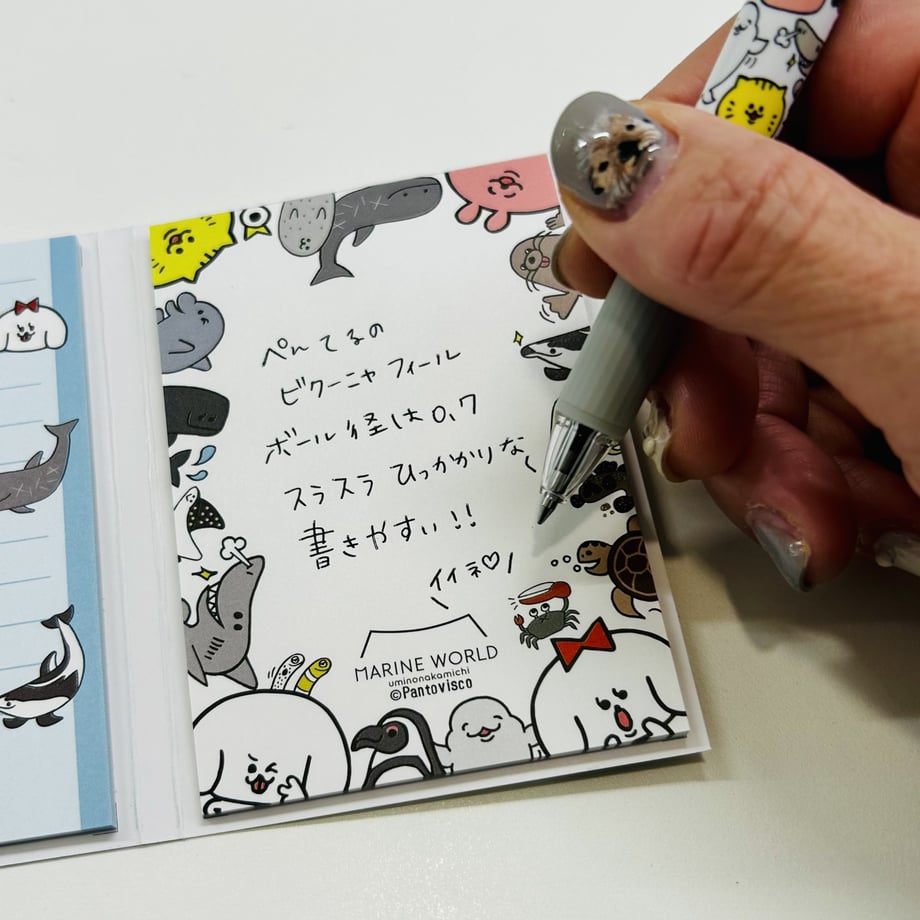 ぺんてるの
ビクーニャ フィール
ボール径は0.7
スラスラ ひっかかりなく
書きやすい!!
イイネ♡
MARINE WORLD
uminonakamichi
©PantoVisco